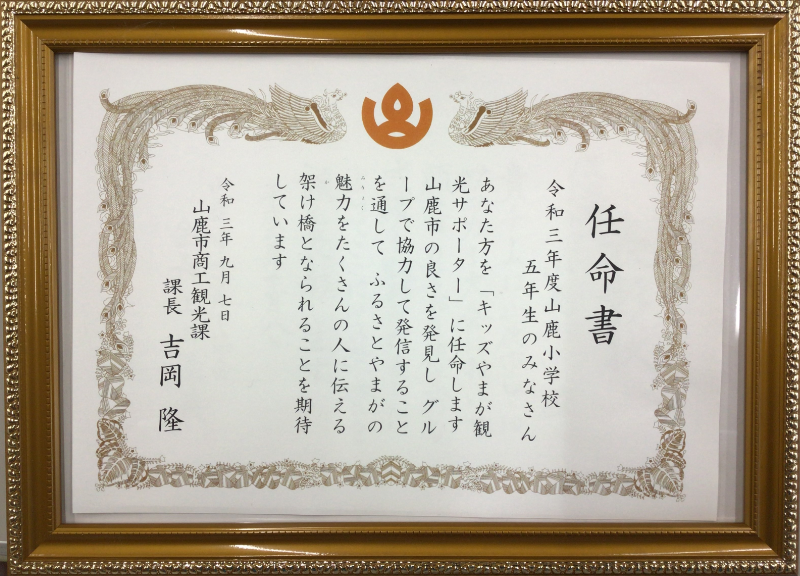 任命書
令和三年度山鹿小学校
五年生のみなさん
あなた方を「キッズやまが観
光サポーター」に任命します
山鹿市の良さを発見し グル
ープで協力して発信すること
を通して ふるさとやまがの
魅力をたくさんの人に伝える
架け橋となられることを期待
しています
令和 三年 九月 七日
山鹿市商工観光課
課長 吉岡 隆